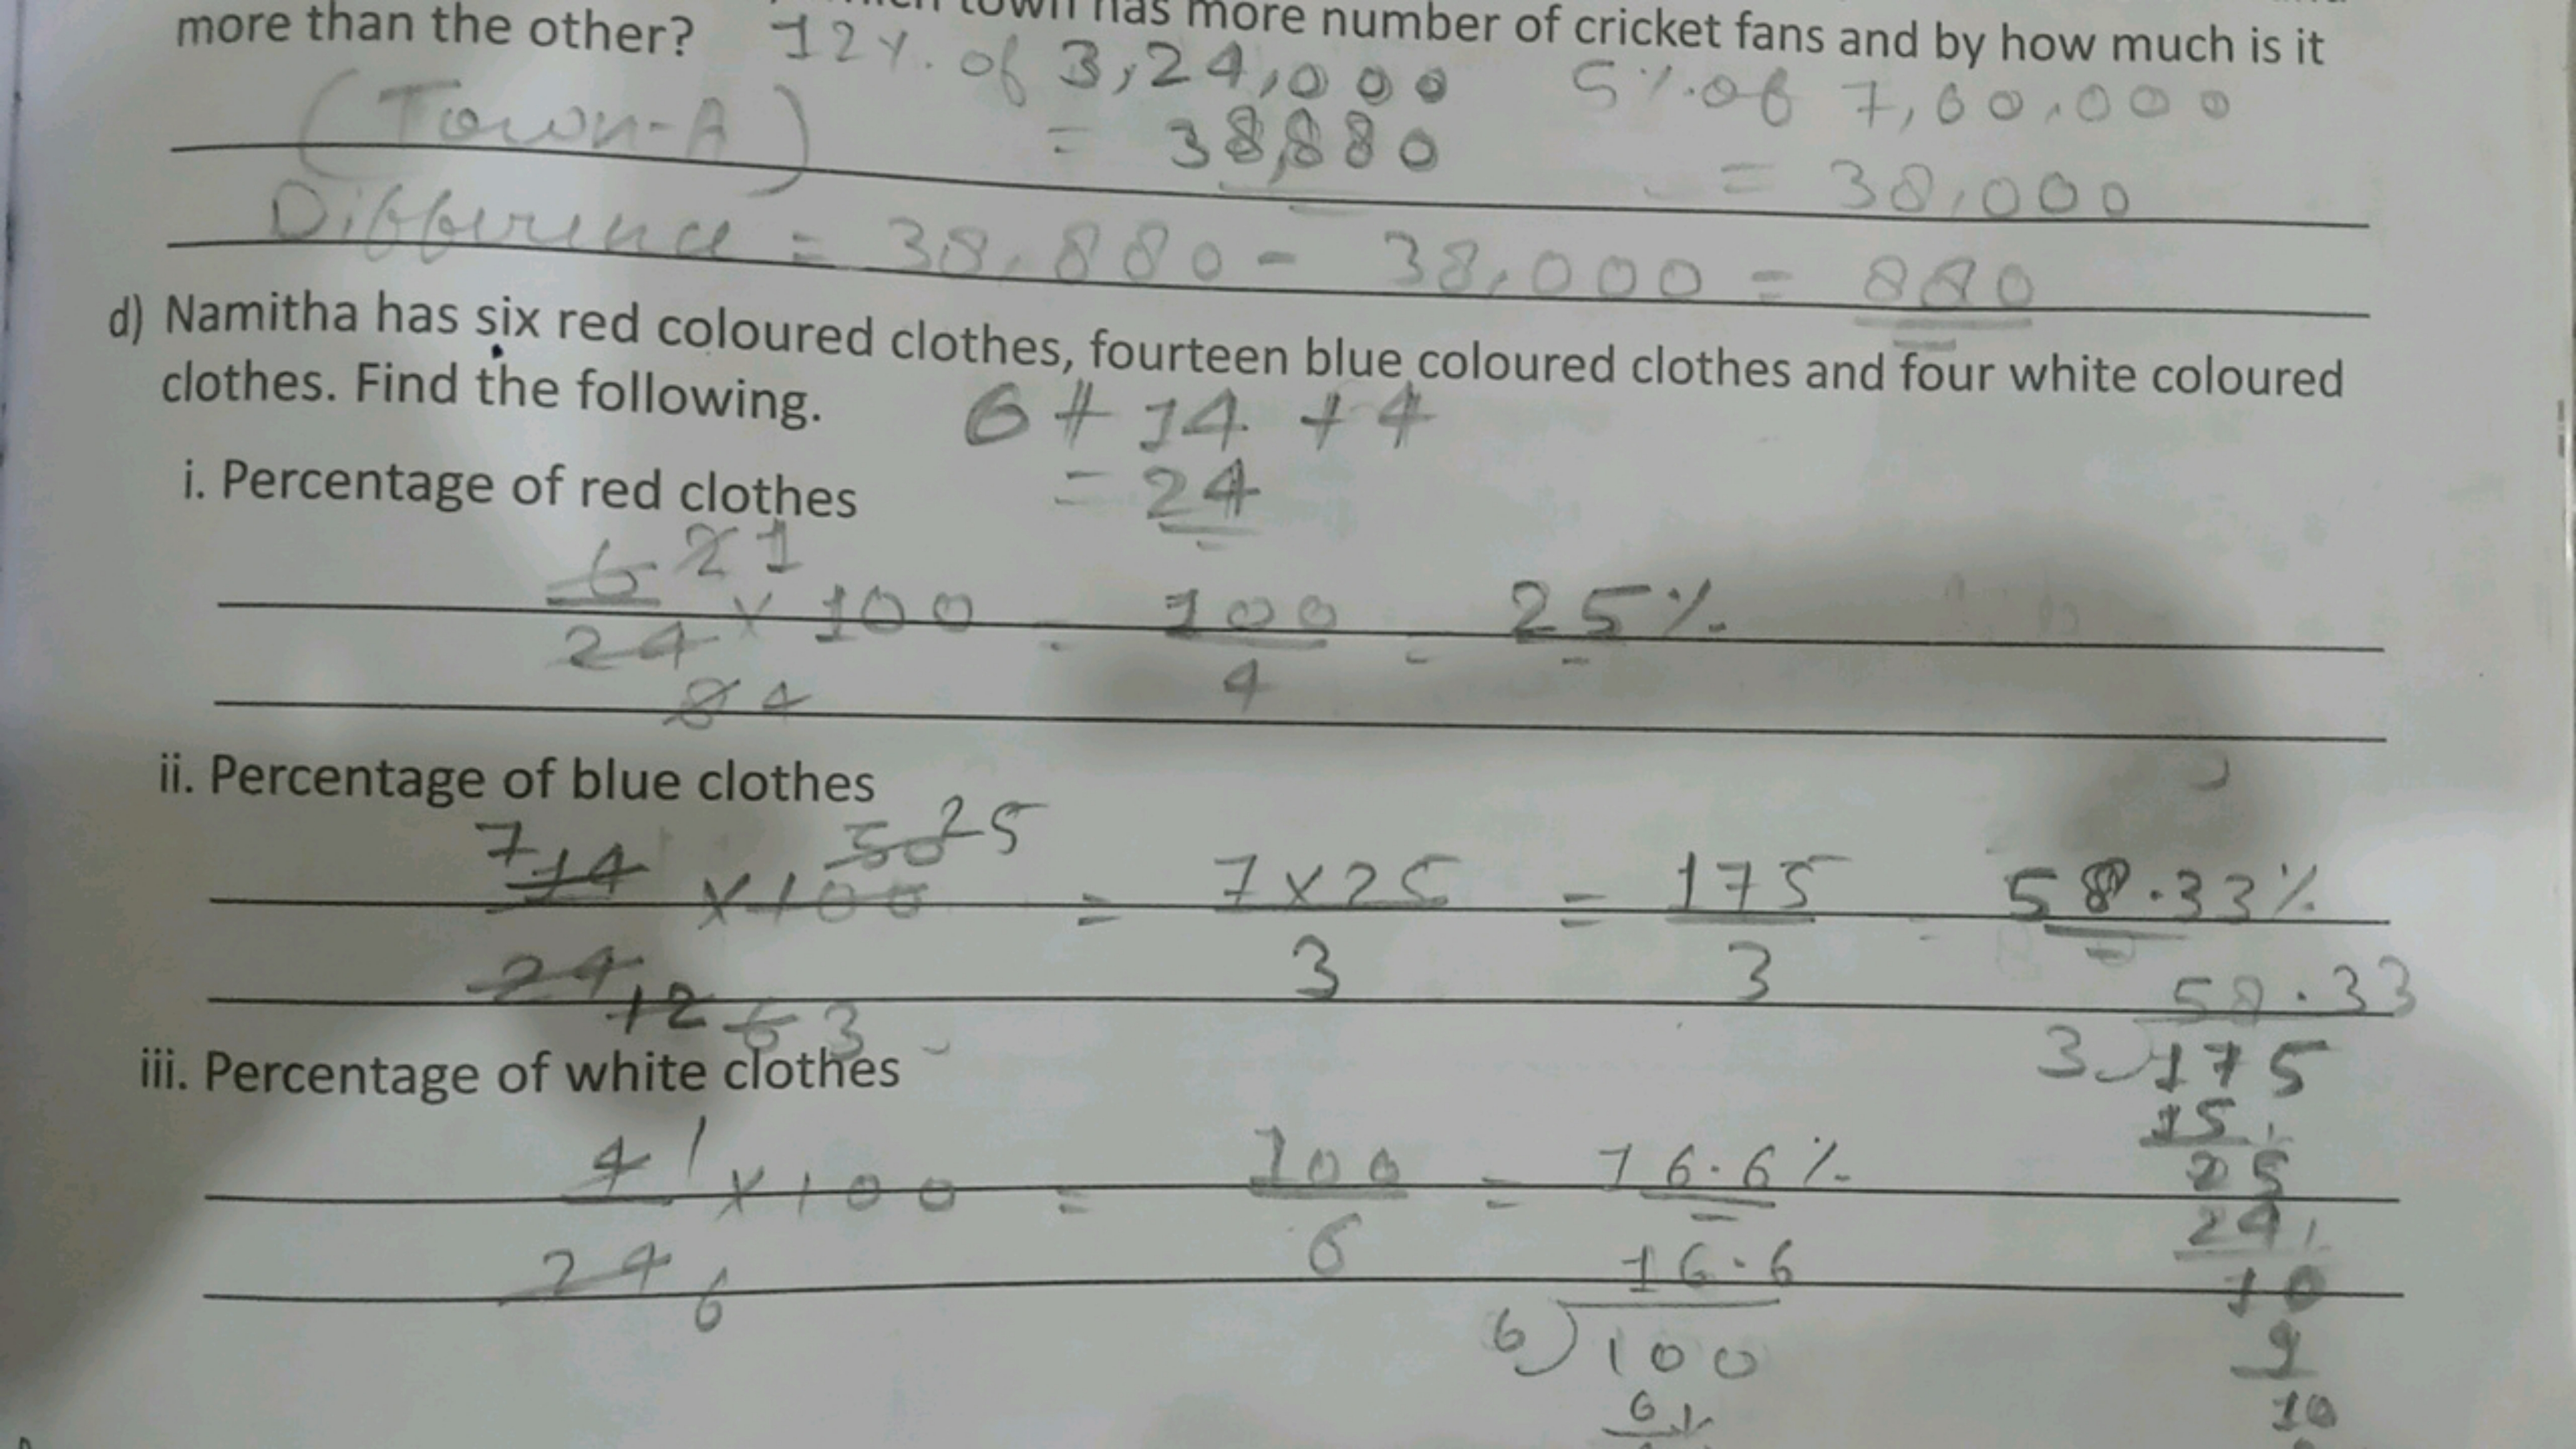 town has more number of cricket fans and by how much is it
more than the other? 12%. of 3,24,000 5%.of 7,60,000
(Town-A) = 38,880 = 38,000
Difference = 38,880 - 38,000 = 880
d) Namitha has six red coloured clothes, fourteen blue coloured clothes and four white coloured
clothes. Find the following.
6 + 14 + 4
= 24
i. Percentage of red clothes
6 2 1
24 × 100 = 100 = 25%
8 4 4
ii. Percentage of blue clothes
7 14 × 100 50 25 = 7×25 = 175 = 58.33%
24 12 6 3 3 3
58.33
3)175
15
25
24
10
9
10
iii. Percentage of white clothes
4 1 × 100 = 100 = 16.6%
24 6 6
16.6
6)100
6